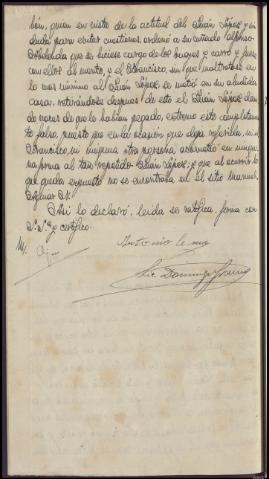 bón, quien en vista de la actitud del Julián López y sin
duda para evitar cuestiones ordenó a su cuñado Alfonso
que se hiciese cargo de los bueyes y carro y fuese
con ellos al huerto, y el Francisco, sin que maltratase en
lo más mínimo al Julián López se metió en su aludida
casa, retirándose después de esto el Julián López dan-
do voces de que lo habían pegado, extremo este completamen-
te falso, puesto que en la ocasión que deja referida, ni
Francisco, ni ninguna otra persona, maltrató en ningu-
na forma al tan repetido Julián López; y que al ocurrir lo
que queda expuesto no se encontraba en el sitio Manuel
Así lo declaró, leída se ratifica, firma con
S. Sª y certifico.
Antonio
Lic. Domingo